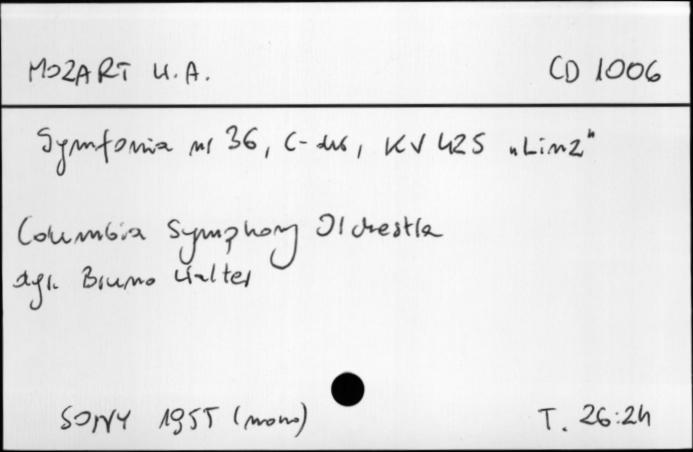 MOZART W. A.
CD 1006
Symfonia nr 36, C-dur, KV 425 „Linz"
Columbia Symphony Orchestra
dyr. Bruno Walter
SONY 1955 (mono)
T. 26:24